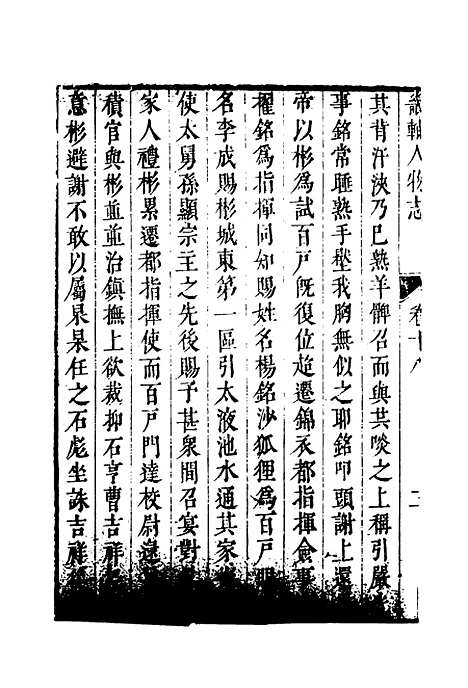 畿輔人物志 卷十八 二
其背汗浹乃已熟羊髀召而與其啖之上稱引嚴
事銘常睡熟手壓我胸無似之耶銘叩頭謝上還
帝以彬為試百戶旣復位超遷錦衣都指揮僉事
擢銘爲指揮同知賜姓名楊銘沙狐狸爲百戶賜
名李成賜彬城東第一區引太液池水通其家
使太舅孫顯宗主之先後賜予甚衆間召宴對
家人禮彬累遷都指揮使而百戶門達校尉逯
積官與彬並並治鎮撫上欲裁抑石亨曹吉祥
意彬避謝不敢以屬杲杲任之石彪坐誅吉祥